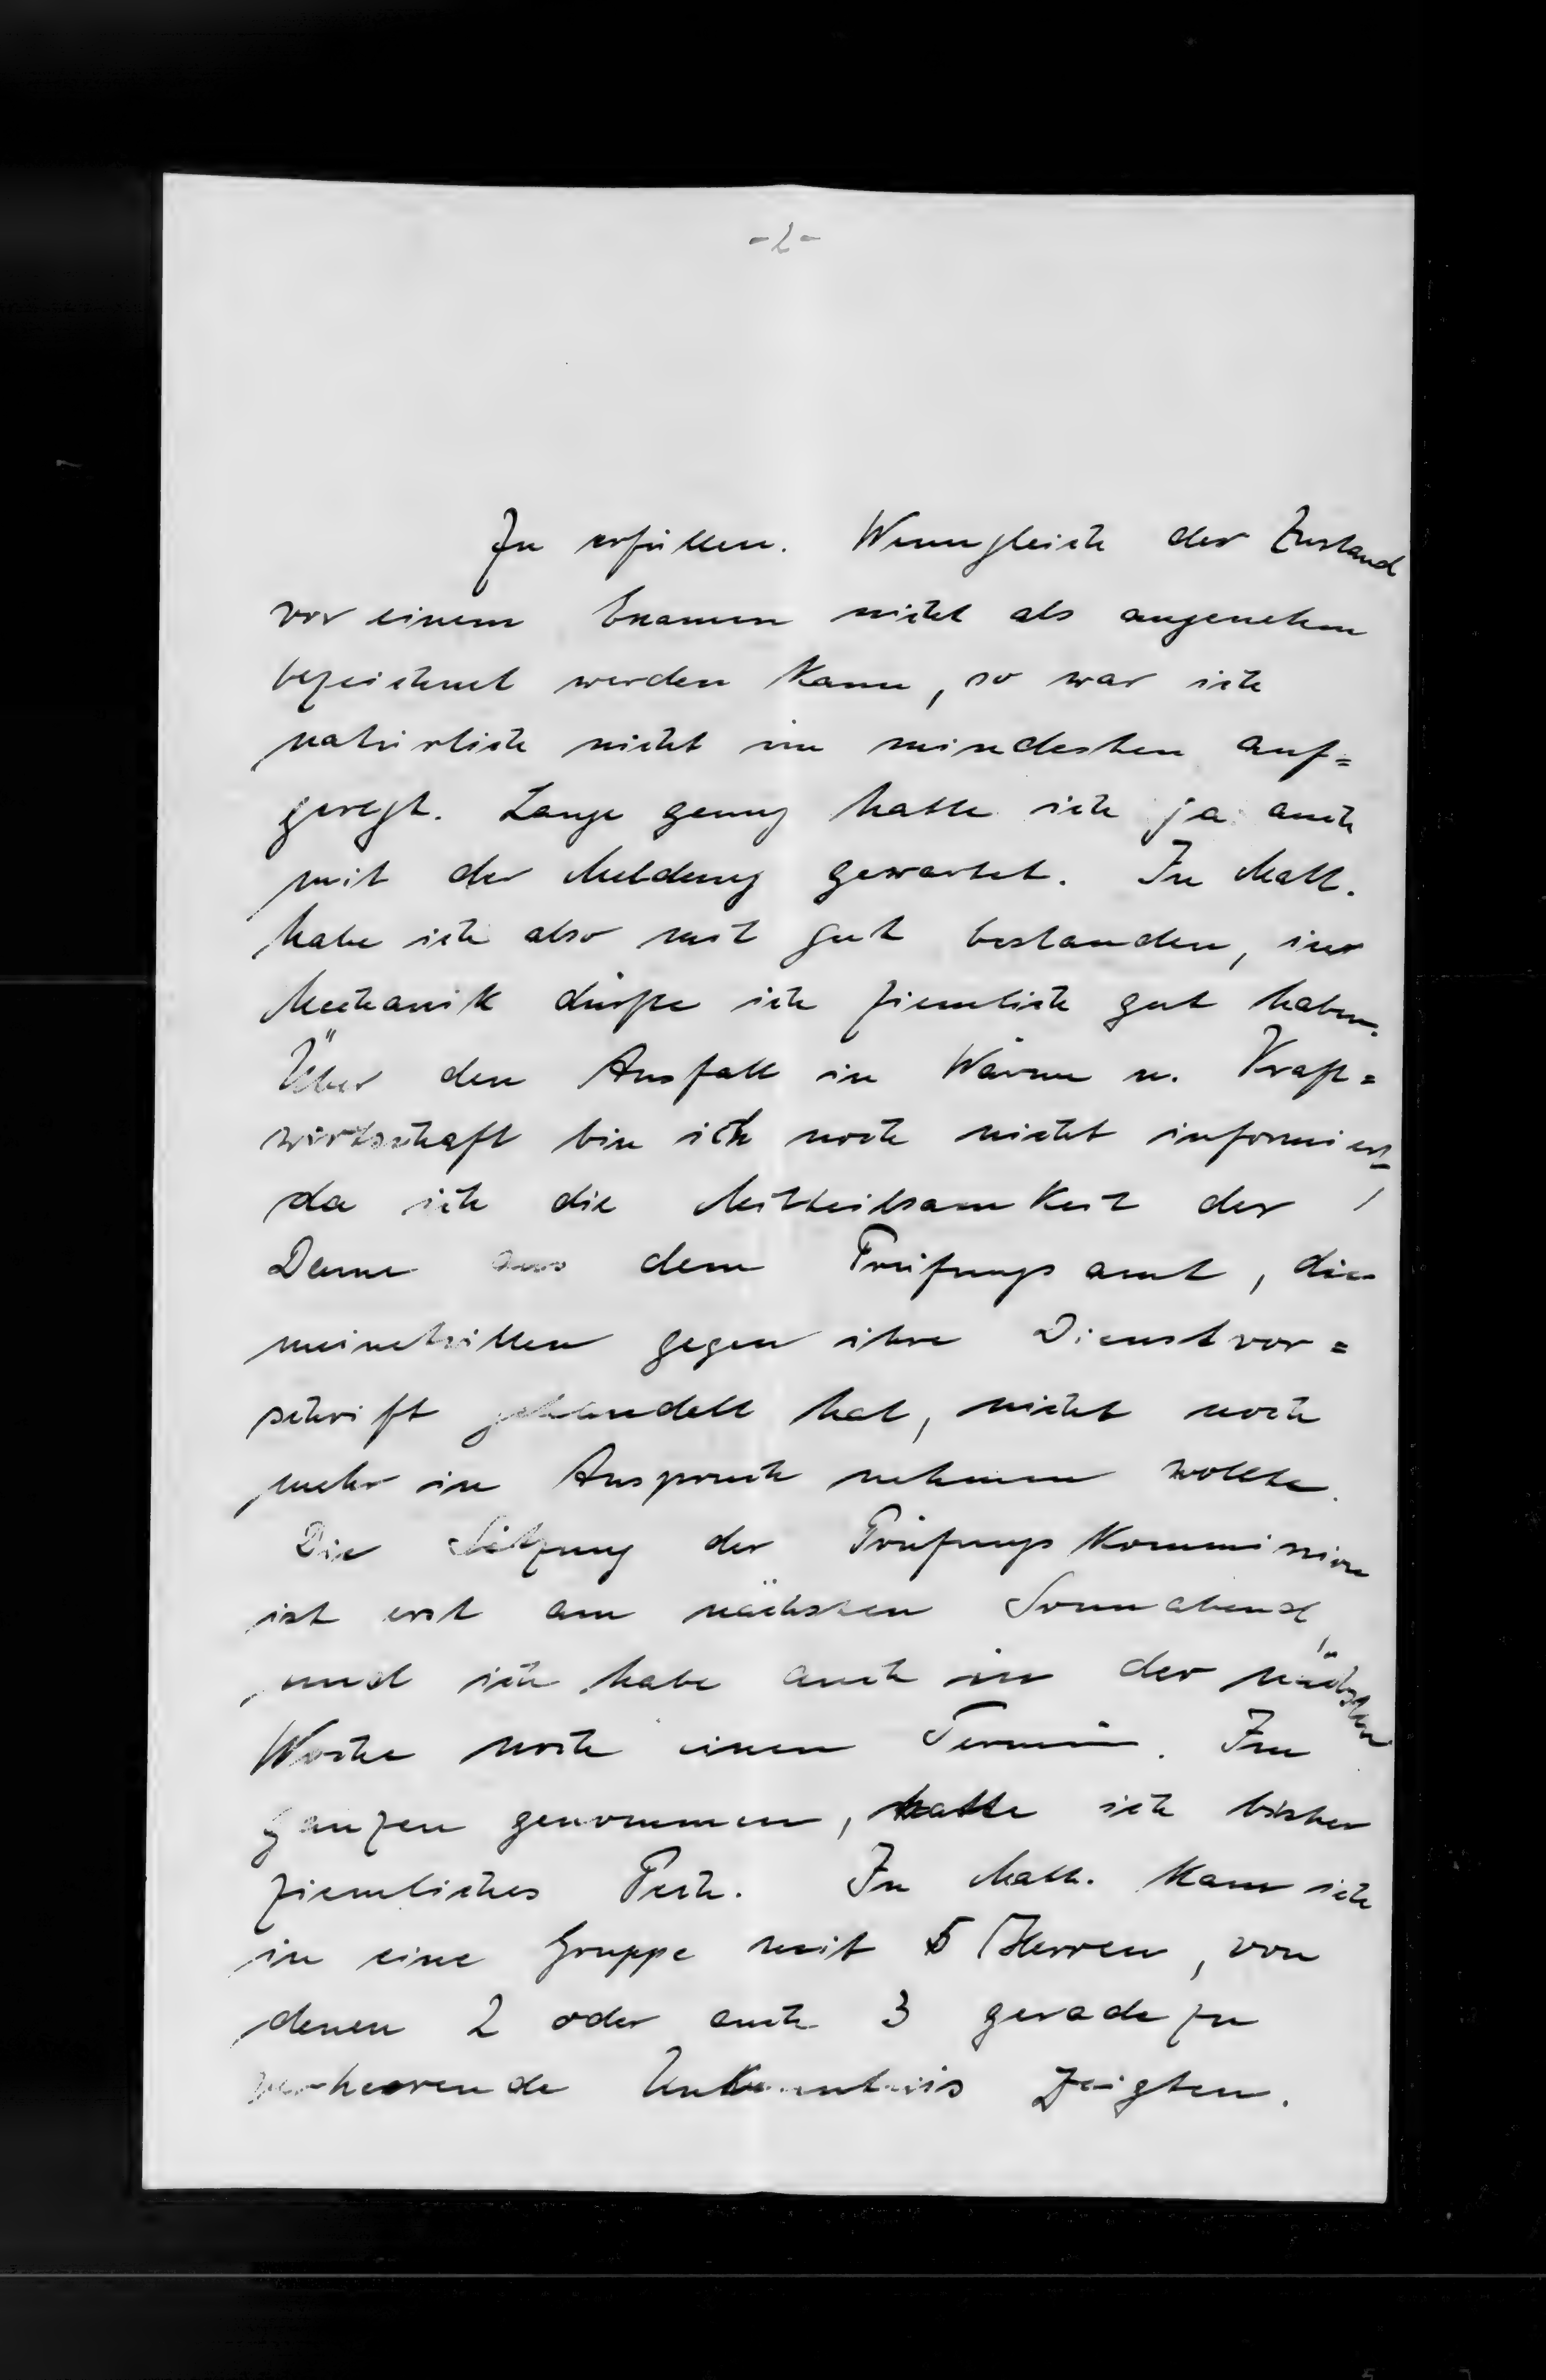 -2-
zu erfüllen. Wenngleich der Zustand
vor einem Examen nicht als angenehm
bezeichnet werden kann, so war ich
natürlich nicht im mindesten auf=
geregt. Lange genug hatte ich ja auch
mit der Meldung gewartet. In Math.
habe ich also mit gut bestanden, in
Mechanik dürfte ich ziemlich gut haben.
Über den Ausfall in Wärme u. Kraft=
wirtschaft bin ich noch nicht informiert,
da ich die Mitteilsamkeit der
Dame aus dem Prüfungsamt, die
meinetwillen gegen ihre Dienstvor=
schrift gehandelt hat, nicht noch
mehr in Anspruch nehmen wollte.
Die Sitzung der Prüfungskommission
ist erst am nächsten Sonnabend,
und ich habe auch in der nächsten
Woche noch einen Termin. Im
ganzen genommen, hatte ich bisher
ziemliches Pech. In Math. kam ich
in eine Gruppe mit 5 Herren, von
denen 2 oder auch 3 geradezu
verheerende Unkenntnis zeigten.